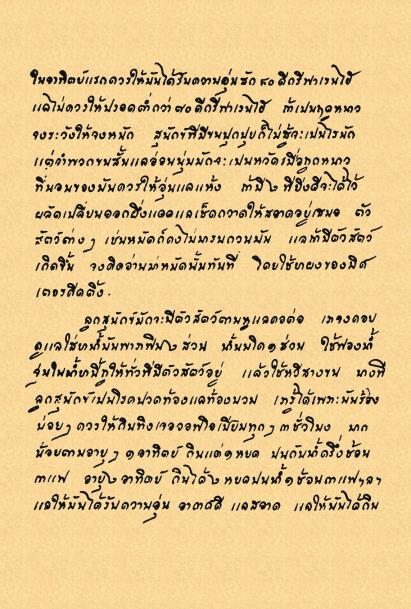 ในอาทิตย์แรกควรให้มันได้รับความอุ่นสัก ๘๐ ดีกรีฟาเรนไฮ้
แลไม่ควรให้ปรอดต่ำกว่า ๗๐ ดีกรีฟาเรนไฮ้ ถ้าเปนฤดูหนาว
จงระวังให้จงหนัก สุนักข์ที่มีขนปุกปุยก็ไม่สู้จะเปนไรนัก
แต่จำพวกขนสั้นแลอ่อนนุ่มมักจะเปนหวัดเมื่อฤดูหนาว
ที่นอนของมันควรให้อุ่นแลแห้ง ถ้ามี ๒ ที่ยิ่งดีจะได้ไว้
ผลัดเปลี่ยนออกผึ่งแดดแลเช็ดถาดให้สอาดอยู่เสมอ ตัว
สัตว์ต่าง ๆ เช่นหมัดก็คงไม่มารบกวนมัน แลถ้ามีตัวสัตว์
เกิดขึ้น จงคิดอ่านฆ่าหมัดนั้นทันที โดยใช้ยาผงของมิศ
เตอรสีคติ้ง.
ลูกสุนักข์มักจะมีตัวสัตว์ตามหูแลคอต่อ เราจงคอย
ดูแลใส่ยาน้ำมันพาราฟิน ๒ ส่วน น้ำมันนิด ๑ ส่วน ใช้ฟองน้ำ
จุ่มในน้ำยานี้ทาให้ทั่วที่มีตัวสัตว์อยู่ แล้วใช้หวีสางขน บางที
ลูกสุนักข์เปนโรคปวดท้องแลท้องบวม เรารู้ได้เพราะมันร้อง
บ่อยๆ ควรให้กินทิงเจอออฟโอเปียมทุกๆ ๓ ชั่วโมง มาก
น้อยตามอายุ ๆ ๑ อาทิตย์ กินแต่ ๑ หยด ปนกับน้ำครึ่งช้อน
กาแฟ อายุ ๒ อาทิตย์ กินได้ ๒ หยดปนน้ำ ๑ ช้อนกาแฟ ฯลฯ
แลให้มันได้รับความอุ่น อากาศดี แลสอาด แลให้มันได้กิน